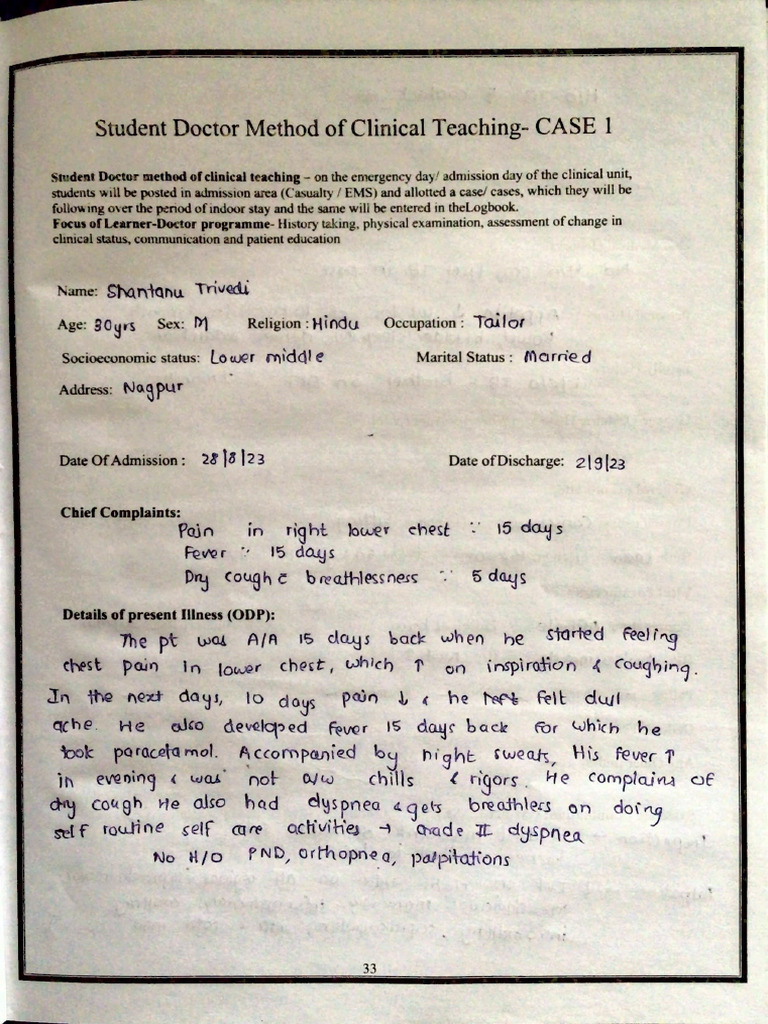 Student Doctor Method of Clinical Teaching- CASE 1
Student Doctor method of clinical teaching – on the emergency day/ admission day of the clinical unit,
students will be posted in admission area (Casualty / EMS) and allotted a case/ cases, which they will be
following over the period of indoor stay and the same will be entered in theLogbook.
Focus of Learner-Doctor programme- History taking, physical examination, assessment of change in
clinical status, communication and patient education
Name: Shantanu Trivedi
Age: 30yrs Sex: M Religion : Hindu Occupation : Tailor
Socioeconomic status: Lower middle Marital Status : Married
Address: Nagpur
Date Of Admission : 28/8/23 Date of Discharge: 2/9/23
Chief Complaints:
Pain in right lower chest ∵ 15 days
Fever ∵ 15 days
Dry cough c̄ breathlessness ∵ 5 days
Details of present Illness (ODP):
The pt was A/A 15 days back when he started feeling
chest pain in lower chest, which ↑ on inspiration & coughing.
In the next days, 10 days pain ↓ & he felt dull
ache. He also developed fever 15 days back for which he
took paracetamol. Accompanied by night sweats, His fever ↑
in evening & was not a/w chills & rigors. He complains of
dry cough He also had dyspnea & gets breathless on doing
self routine self care activities → Grade III dyspnea
No H/O PND, orthopnea, palpitations
33